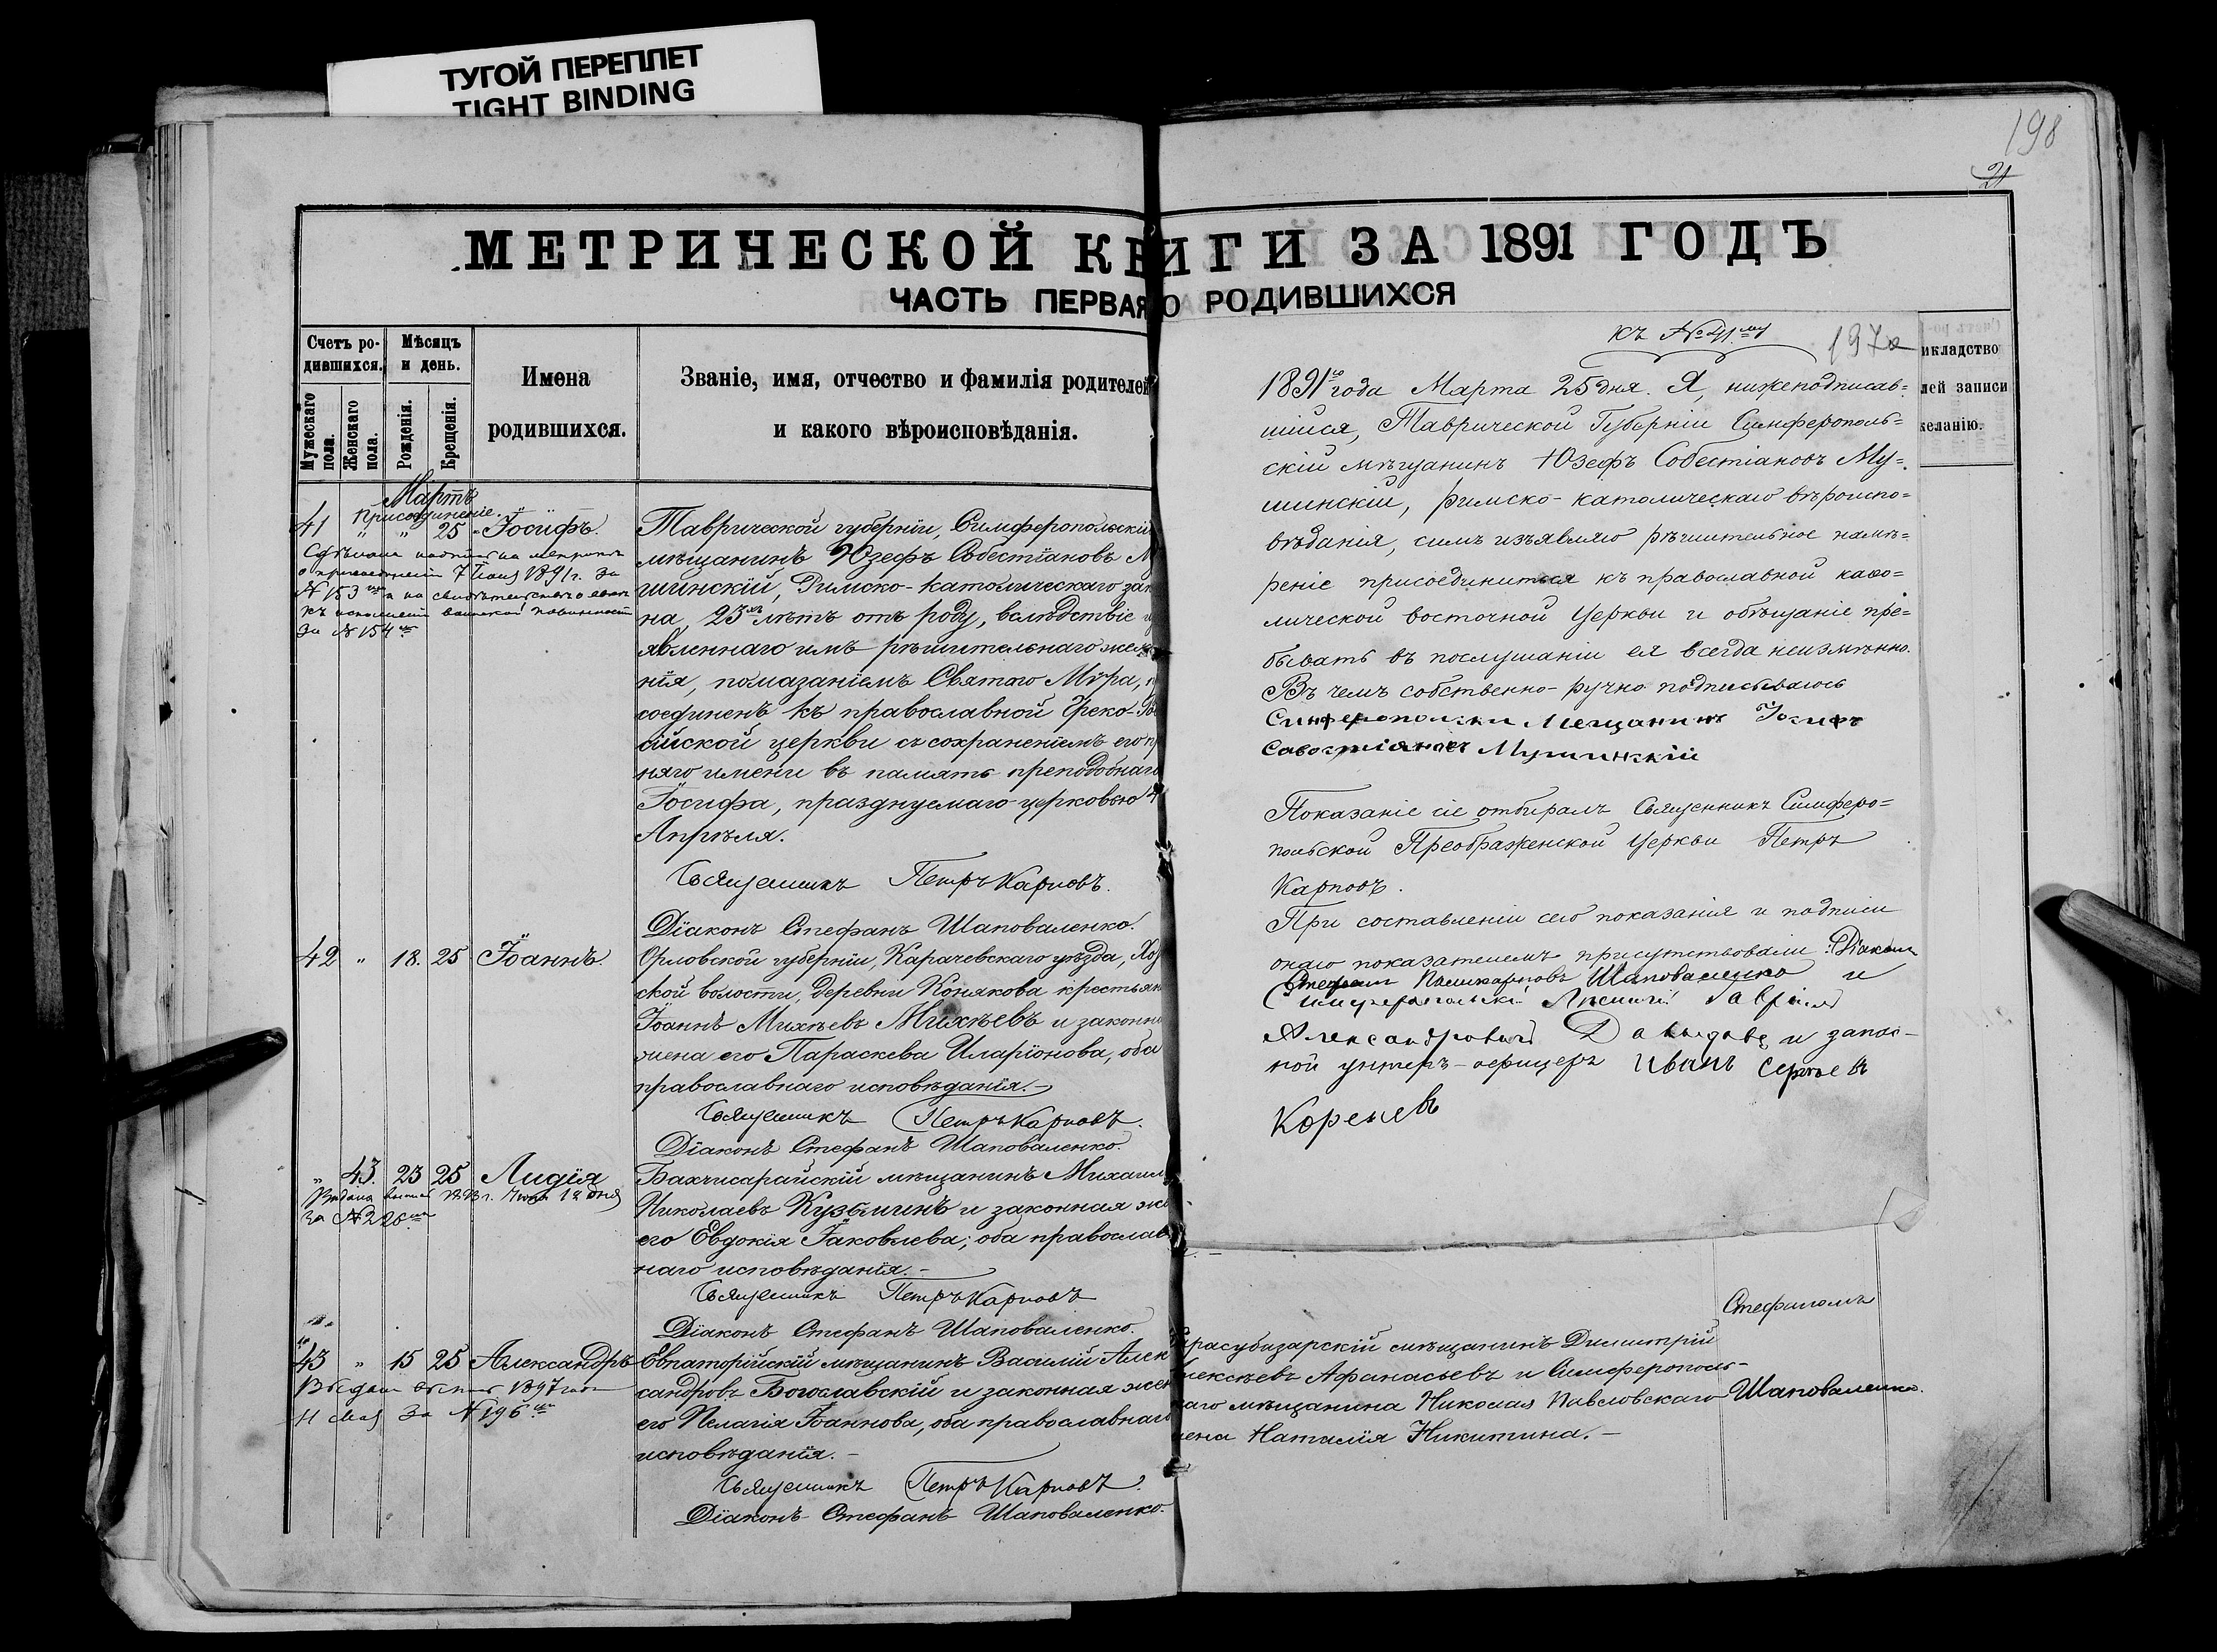 ТУГОЙ ПЕРЕПЛЕТ
TIGHT BINDING
198
21
МЕТРИЧЕСКОЙ КНИГИ ЗА 1891 ГОДЪ
ЧАСТЬ ПЕРВАЯ О РОДИВШИХСЯ
Счетъ ро-
дившихся.
Мѣсяцъ
и день.
Мужескаго
пола.
Женскаго
пола.
Рожденія.
Крещенія.
Имена
родившихся.
Званіе, имя, отчество и фамилія родителей
и какого вѣроисповѣданія.
Мартъ
Присоединеніе.
41 " " 25 Іосифъ.
о присоединеніи 7 Іюня 1891 г. За
№ 153
За № 154
Таврической губерніи, Симферопольскій
мѣщанинъ Юзефъ Собестіановъ М
шинскій, Римско-католическаго зак
на, 23хъ лѣтъ отъ роду, вслѣдствіе
явленнаго имъ рѣшительнаго жела
нія, помазаніемъ Святаго Мѵра, п
соединенъ къ православной Греко-Рос
сійской церкви съ сохраненіемъ его п
няго имени въ память преподобнаго
Іосифа, празднуемаго церковью 4
Апрѣля.
Священникъ Петръ Карповъ.
Діаконъ Стефанъ Шаповаленко.
42 " 18. 25 Іоаннъ.
Орловской губерніи, Карачевскаго уѣзда,
ской волости, деревни Конякова крестьян
Іоаннъ Михѣевъ Михѣевъ и законна
жена его Параскева Иларіонова, оба
православнаго исповѣданія.—
Священникъ Петръ Карповъ.
Діаконъ Стефанъ Шаповаленко.
" 43. 23 25 Лидія
За № 226
Бахчисарайскій мѣщанинъ Михаилъ
Николаевъ Кузьминъ и законная же
его Евдокія Іаковлева; оба православ
наго исповѣданія.—
Священникъ Петръ Карповъ
Діаконъ Стефанъ Шаповаленко.
43 " 15 25 Александръ
Выдана выпись 1897 года
11 Мая За № 196
Евпаторійскій мѣщанинъ Василій Алек
сандровъ Богославскій и законная жен
его Пелагія Іоаннова, оба православнаго
исповѣданія.—
Священникъ Петръ Карповъ.
Діаконъ Стефанъ Шаповаленко.
къ № 41му
197
икладство
лей записи
желанію.
1891го года Марта 25 дня. Я, нижеподписав=
шійся, Таврической Губерніи Симферополь=
скій мѣщанинъ Юзефъ Собестіановъ Му=
шинскій, римско-католическаго вѣроиспо=
вѣданія, симъ изъявляю рѣшительное намѣ=
реніе присоединиться къ православной каѳо=
лической восточной Церкви и обѣщаніе пре=
бывать въ послушаніи ея всегда неизмѣнно.
Въ чемъ собственно-ручно подписываюсь
Мещанинъ
Мушинскій
Показаніе сіе отбиралъ Священникъ Симферо=
польской Преображенской Церкви Петръ
Карповъ.
При составленіи сего показанія и подписи
онаго показателемъ присутствовали: Діаконъ
Стефанъ Шаповаленко и
Гавріилъ
Александровичъ Давыдовъ и запас-
ной унтеръ-офицеръ Иванъ Сергѣевъ
Кореневъ
Стефаномъ
Шаповаленко.
расубазарскій мѣщанинъ Димитрій
лексѣевъ Афанасьевъ и Симферополь-
каго мѣщанина Николая Павловскаго
жена Наталія Никитина.—